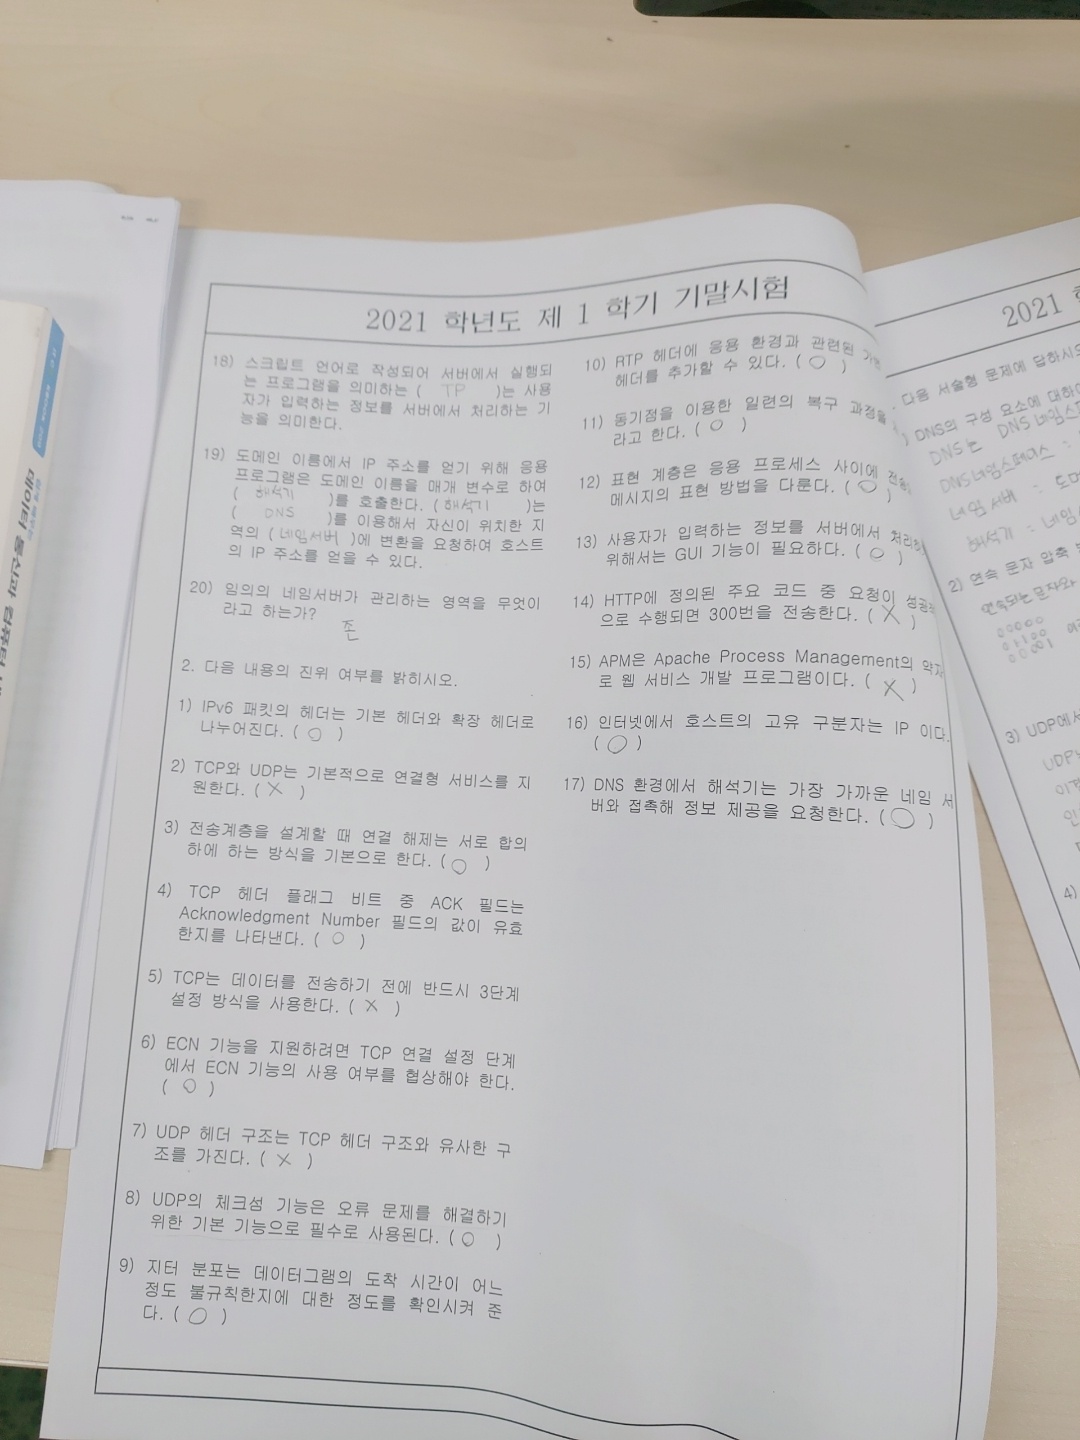 2021 학년도 제 1 학기 기말시험
18) 스크립트 언어로 작성되어 서버에서 실행되
는 프로그램을 의미하는 ( TP )는 사용
자가 입력하는 정보를 서버에서 처리하는 기
능을 의미한다.
19) 도메인 이름에서 IP 주소를 얻기 위해 응용
프로그램은 도메인 이름을 매개 변수로 하여
( 해석기 )를 호출한다. ( 해석기 )는
( DNS )를 이용해서 자신이 위치한 지
역의 ( 네임서버 )에 변환을 요청하여 호스트
의 IP 주소를 얻을 수 있다.
20) 임의의 네임서버가 관리하는 영역을 무엇이
라고 하는가?
존
2. 다음 내용의 진위 여부를 밝히시오.
1) IPv6 패킷의 헤더는 기본 헤더와 확장 헤더로
나누어진다. ( O )
2) TCP와 UDP는 기본적으로 연결형 서비스를 지
원한다. ( X )
3) 전송계층을 설계할 때 연결 해제는 서로 합의
하에 하는 방식을 기본으로 한다. ( O )
4) TCP 헤더 플래그 비트 중 ACK 필드는
Acknowledgment Number 필드의 값이 유효
한지를 나타낸다. ( O )
5) TCP는 데이터를 전송하기 전에 반드시 3단계
설정 방식을 사용한다. ( X )
6) ECN 기능을 지원하려면 TCP 연결 설정 단계
에서 ECN 기능의 사용 여부를 협상해야 한다.
( O )
7) UDP 헤더 구조는 TCP 헤더 구조와 유사한 구
조를 가진다. ( X )
8) UDP의 체크섬 기능은 오류 문제를 해결하기
위한 기본 기능으로 필수로 사용된다. ( O )
9) 지터 분포는 데이터그램의 도착 시간이 어느
정도 불규칙한지에 대한 정도를 확인시켜 준
다. ( O )
10) RTP 헤더에 응용 환경과 관련된
헤더를 추가할 수 있다. ( O )
11) 동기점을 이용한 일련의 복구 과정을
라고 한다. ( O )
12) 표현 계층은 응용 프로세스 사이에
메시지의 표현 방법을 다룬다. ( O )
13) 사용자가 입력하는 정보를 서버에서
위해서는 GUI 기능이 필요하다. ( O )
14) HTTP에 정의된 주요 코드 중 요청이
으로 수행되면 300번을 전송한다. ( X )
15) APM은 Apache Process Management의 약자
로 웹 서비스 개발 프로그램이다. ( X )
16) 인터넷에서 호스트의 고유 구분자는 IP 이다.
( O )
17) DNS 환경에서 해석기는 가장 가까운 네임 서
버와 접촉해 정보 제공을 요청한다. ( O )
2021
다음 서술형 문제에 답하시오
DNS의 구성 요소에 대하여
DNS는 DNS 네임스페
DNS네임스페이스 :
네임서버 :
해석기 : 네임
2) 연속 문자 압축
연속되는 문자와
00000
01100
00001
3) UDP에서
UDP
4)
데이터 통신과 컴퓨터